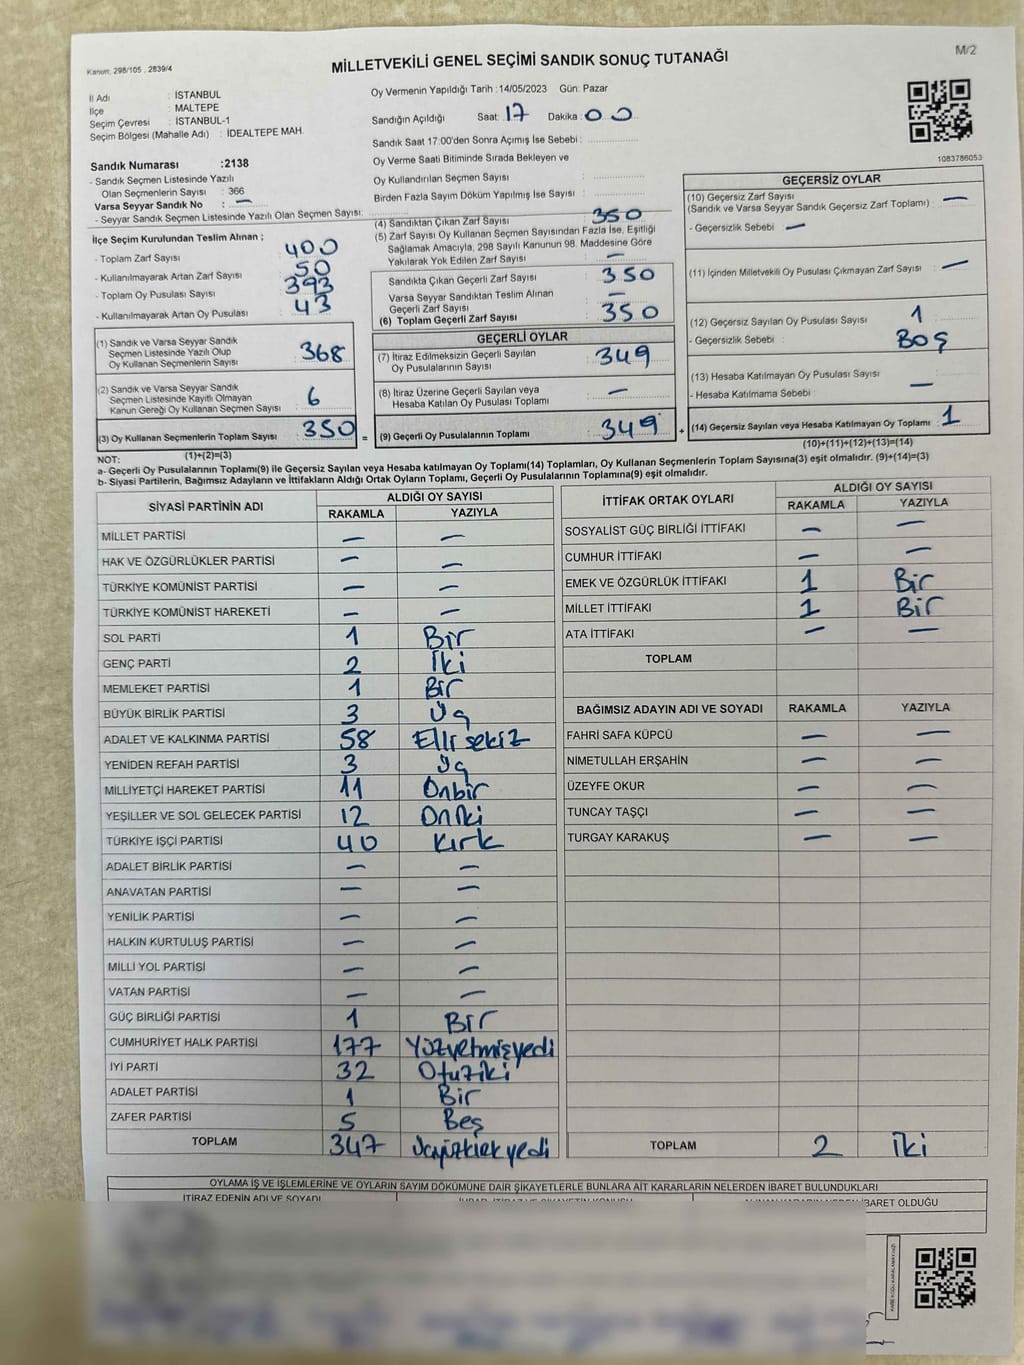 Kanun: 298/105 . 2839/4
MİLLETVEKİLİ GENEL SEÇİMİ SANDIK SONUÇ TUTANAĞI
M/2
İl Adı : İSTANBUL
İlçe : MALTEPE
Seçim Çevresi : İSTANBUL-1
Seçim Bölgesi (Mahalle Adı) : İDEALTEPE MAH.
Sandık Numarası :2138
- Sandık Seçmen Listesinde Yazılı
Olan Seçmenlerin Sayısı : 366
Varsa Seyyar Sandık No : —
- Seyyar Sandık Seçmen Listesinde Yazılı Olan Seçmen Sayısı:
İlçe Seçim Kurulundan Teslim Alınan ;
- Toplam Zarf Sayısı : 400
- Kullanılmayarak Artan Zarf Sayısı : 50
- Toplam Oy Pusulası Sayısı : 393
- Kullanılmayarak Artan Oy Pusulası : 43
(1) Sandık ve Varsa Seyyar Sandık
Seçmen Listesinde Yazılı Olup
Oy Kullanan Seçmenlerin Sayısı 368
(2) Sandık ve Varsa Seyyar Sandık
Seçmen Listesinde Kayıtlı Olmayan
Kanun Gereği Oy Kullanan Seçmen Sayısı 6
(3) Oy Kullanan Seçmenlerin Toplam Sayısı 350
(1)+(2)=(3)
Oy Vermenin Yapıldığı Tarih :14/05/2023 Gün: Pazar
Sandığın Açıldığı Saat: 17 Dakika: 00
Sandık Saat 17:00'den Sonra Açımış İse Sebebi :
Oy Verme Saati Bitiminde Sırada Bekleyen ve
Oy Kullandırılan Seçmen Sayısı :
Birden Fazla Sayım Döküm Yapılmış İse Sayısı :
(4) Sandıktan Çıkan Zarf Sayısı 350
(5) Zarf Sayısı Oy Kullanan Seçmen Sayısından Fazla İse, Eşitliği
Sağlamak Amacıyla, 298 Sayılı Kanunun 98. Maddesine Göre
Yakılarak Yok Edilen Zarf Sayısı —
Sandıkta Çıkan Geçerli Zarf Sayısı 350
Varsa Seyyar Sandıktan Teslim Alınan
Geçerli Zarf Sayısı —
(6) Toplam Geçerli Zarf Sayısı 350
GEÇERLİ OYLAR
(7) İtiraz Edilmeksizin Geçerli Sayılan
Oy Pusulalarının Sayısı 349
(8) İtiraz Üzerine Geçerli Sayılan veya
Hesaba Katılan Oy Pusulası Toplamı —
= (9) Geçerli Oy Pusulalarının Toplamı 349 +
1083786053
GEÇERSİZ OYLAR
(10) Geçersiz Zarf Sayısı
(Sandık ve Varsa Seyyar Sandık Geçersiz Zarf Toplamı) : —
- Geçersizlik Sebebi —
(11) İçinden Milletvekili Oy Pusulası Çıkmayan Zarf Sayısı : —
(12) Geçersiz Sayılan Oy Pusulası Sayısı 1
- Geçersizlik Sebebi : BOŞ
(13) Hesaba Katılmayan Oy Pusulası Sayısı
- Hesaba Katılmama Sebebi —
(14) Geçersiz Sayılan veya Hesaba Katılmayan Oy Toplamı : 1
(10)+(11)+(12)+(13)=(14)
NOT:
a- Geçerli Oy Pusulalarının Toplamı(9) ile Geçersiz Sayılan veya Hesaba katılmayan Oy Toplamı(14) Toplamları, Oy Kullanan Seçmenlerin Toplam Sayısına(3) eşit olmalıdır. (9)+(14)=(3)
b- Siyasi Partilerin, Bağımsız Adayların ve İttifakların Aldığı Ortak Oyların Toplamı, Geçerli Oy Pusulalarının Toplamına(9) eşit olmalıdır.
SİYASİ PARTİNİN ADI ALDIĞI OY SAYISI
RAKAMLA YAZIYLA
MİLLET PARTİSİ — —
HAK VE ÖZGÜRLÜKLER PARTİSİ — —
TÜRKİYE KOMÜNİST PARTİSİ — —
TÜRKİYE KOMÜNİST HAREKETİ — —
SOL PARTİ 1 Bir
GENÇ PARTİ 2 İki
MEMLEKET PARTİSİ 1 Bir
BÜYÜK BİRLİK PARTİSİ 3 Üç
ADALET VE KALKINMA PARTİSİ 58 Elli sekiz
YENİDEN REFAH PARTİSİ 3 Üç
MİLLİYETÇİ HAREKET PARTİSİ 11 Onbir
YEŞİLLER VE SOL GELECEK PARTİSİ 12 Oniki
TÜRKİYE İŞÇİ PARTİSİ 40 Kırk
ADALET BİRLİK PARTİSİ — —
ANAVATAN PARTİSİ — —
YENİLİK PARTİSİ — —
HALKIN KURTULUŞ PARTİSİ — —
MİLLİ YOL PARTİSİ — —
VATAN PARTİSİ — —
GÜÇ BİRLİĞİ PARTİSİ 1 Bir
CUMHURİYET HALK PARTİSİ 177 Yüzyetmişyedi
İYİ PARTİ 32 Otuziki
ADALET PARTİSİ 1 Bir
ZAFER PARTİSİ 5 Beş
TOPLAM 347 Üçyüzkırkyedi
İTTİFAK ORTAK OYLARI ALDIĞI OY SAYISI
RAKAMLA YAZIYLA
SOSYALİST GÜÇ BİRLİĞİ İTTİFAKI — —
CUMHUR İTTİFAKI — —
EMEK VE ÖZGÜRLÜK İTTİFAKI 1 Bir
MİLLET İTTİFAKI 1 Bir
ATA İTTİFAKI — —
TOPLAM
BAĞIMSIZ ADAYIN ADI VE SOYADI RAKAMLA YAZIYLA
FAHRİ SAFA KÜPCÜ — —
NİMETULLAH ERŞAHİN — —
ÜZEYFE OKUR — —
TUNCAY TAŞÇI — —
TURGAY KARAKUŞ — —
TOPLAM 2 İki
OYLAMA İŞ VE İŞLEMLERİNE VE OYLARIN SAYIM DÖKÜMÜNE DAİR ŞİKAYETLERLE BUNLARA AİT KARARLARIN NELERDEN İBARET BULUNDUKLARI
İTİRAZ EDENİN ADI VE SOYADI İBARET OLDUĞU